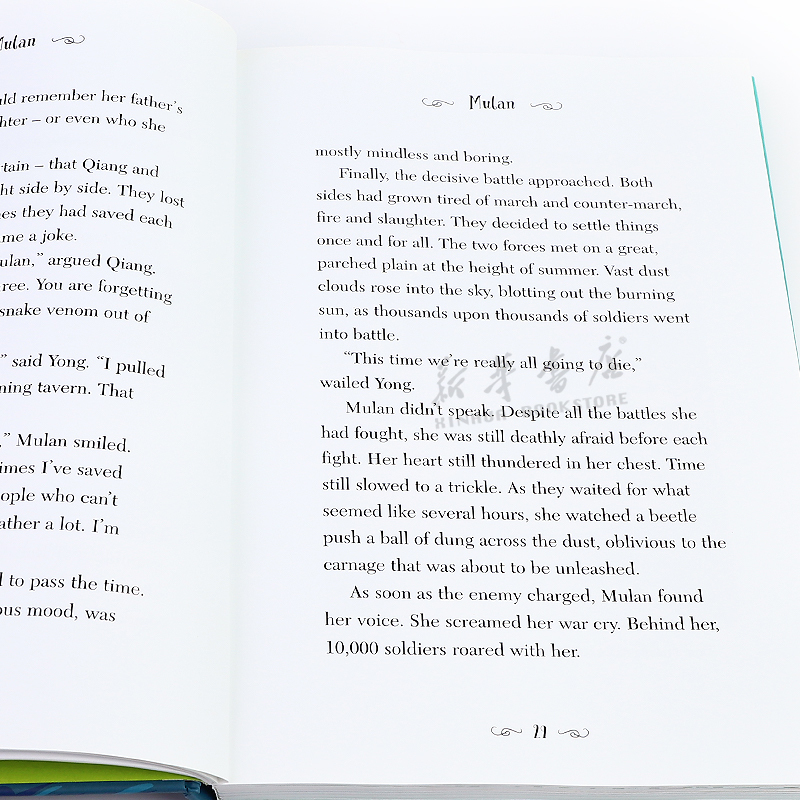 Mulan
uld remember her father's
hter – or even who she
tain – that Qiang and
ht side by side. They lost
es they had saved each
me a joke.
ulan,” argued Qiang.
ree. You are forgetting
snake venom out of
” said Yong. “I pulled
ning tavern. That
,” Mulan smiled.
imes I've saved
ople who can't
ather a lot. I'm
d to pass the time.
ous mood, was
Mulan
mostly mindless and boring.
Finally, the decisive battle approached. Both
sides had grown tired of march and counter-march,
fire and slaughter. They decided to settle things
once and for all. The two forces met on a great,
parched plain at the height of summer. Vast dust
clouds rose into the sky, blotting out the burning
sun, as thousands upon thousands of soldiers went
into battle.
“This time we're really all going to die,”
wailed Yong.
Mulan didn't speak. Despite all the battles she
had fought, she was still deathly afraid before each
fight. Her heart still thundered in her chest. Time
still slowed to a trickle. As they waited for what
seemed like several hours, she watched a beetle
push a ball of dung across the dust, oblivious to the
carnage that was about to be unleashed.
As soon as the enemy charged, Mulan found
her voice. She screamed her war cry. Behind her,
10,000 soldiers roared with her.
新华书店
XINHUA BOOKSTORE